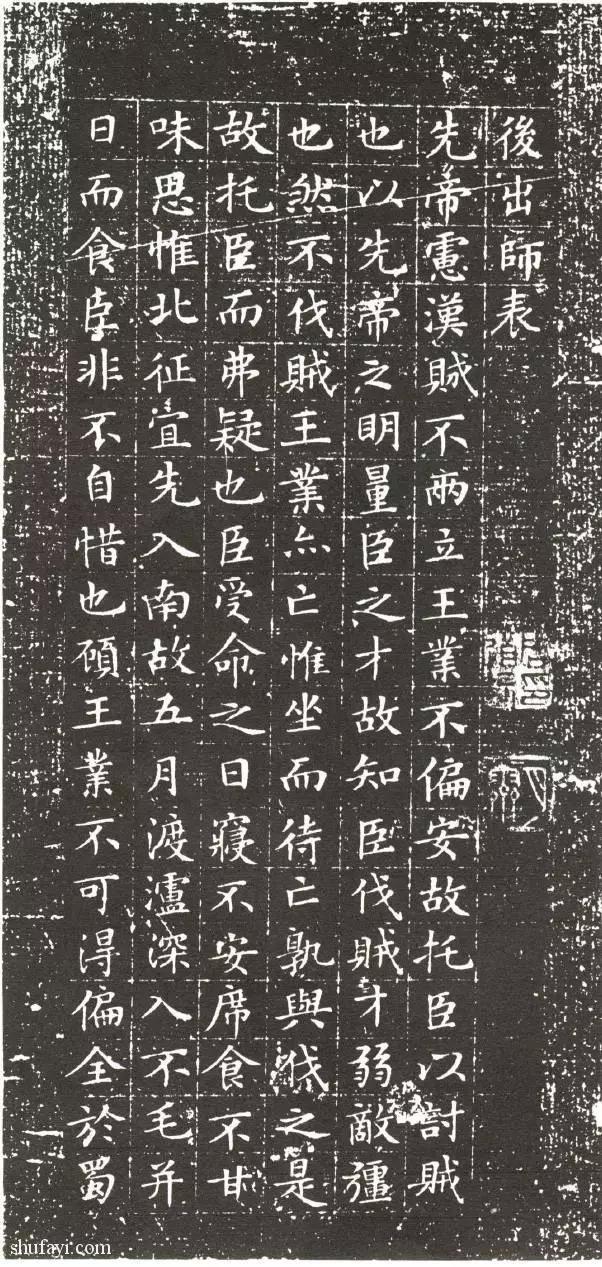 後出師表
先帝慮漢賊不兩立王業不偏安故托臣以討賊
也以先帝之明量臣之才故知臣伐賊才弱敵彊
也然不伐賊王業亦亡惟坐而待亡孰與伐之是
故托臣而弗疑也臣受命之日寢不安席食不甘
味思惟北征宜先入南故五月渡瀘深入不毛并
日而食臣非不自惜也顧王業不可得偏全於蜀
shufayi.com